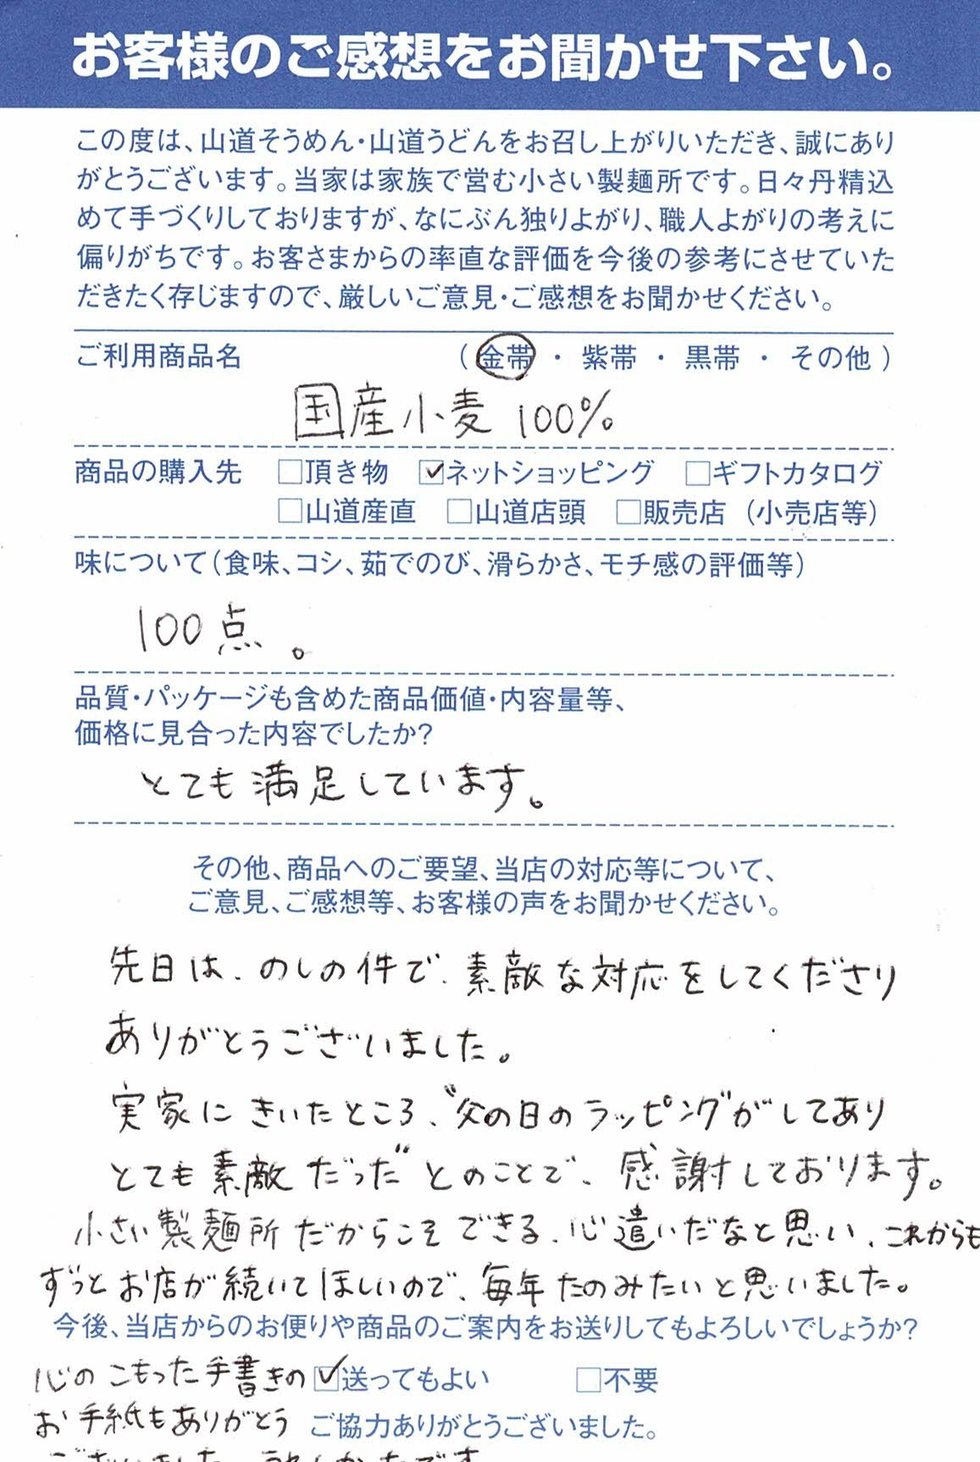 お客様のご感想をお聞かせ下さい。
この度は、山道そうめん・山道うどんをお召し上がりいただき、誠にあり
がとうございます。当家は家族で営む小さい製麺所です。日々丹精込
めて手づくりしておりますが、なにぶん独りよがり、職人よがりの考えに
偏りがちです。お客さまからの率直な評価を今後の参考にさせていた
だきたく存じますので、厳しいご意見・ご感想をお聞かせください。
ご利用商品名 （ 金帯 ・ 紫帯 ・ 黒帯 ・ その他 ）
国産小麦 100%
商品の購入先 □頂き物 ☑ネットショッピング □ギフトカタログ
□山道産直 □山道店頭 □販売店（小売店等）
味について（食味、コシ、茹でのび、滑らかさ、モチ感の評価等）
100点。
品質・パッケージも含めた商品価値・内容量等、
価格に見合った内容でしたか?
とても満足しています。
その他、商品へのご要望、当店の対応等について、
ご意見、ご感想等、お客様の声をお聞かせください。
先日は、のしの件で、素敵な対応をしてくださり
ありがとうございました。
実家にきいたところ、〝父の日のラッピングがしてあり
とても素敵だった〟とのことで、感謝しております。
小さい製麺所だからこそできる、心遣いだなと思い、これからも
ずっとお店が続いてほしいので、毎年たのみたいと思いました。
今後、当店からのお便りや商品のご案内をお送りしてもよろしいでしょうか?
心のこもった手書きの ☑送ってもよい □不要
お手紙もありがとう ご協力ありがとうございました。
ございました